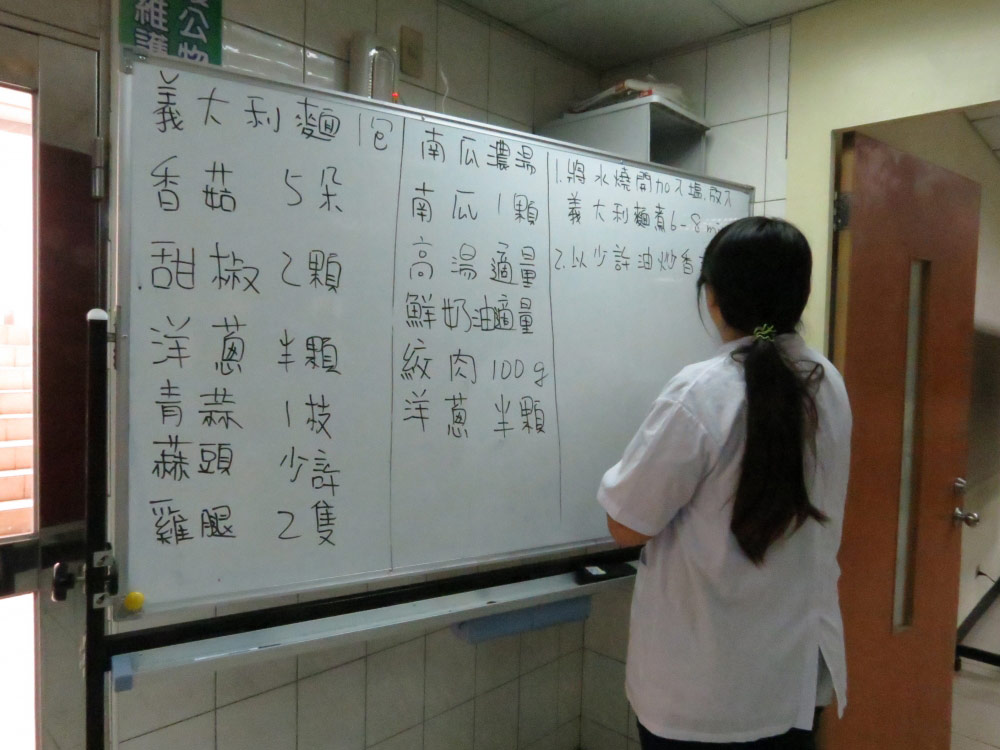 公物
維護
義大利麵 1包
香菇 5朵
甜椒 2顆
洋蔥 半顆
青蒜 1枝
蒜頭 少許
雞腿 2隻
南瓜濃湯
南瓜 1顆
高湯 適量
鮮奶油適量
絞肉 100g
洋蔥 半顆
1.將水燒開加入塩.放入
義大利麵煮6-8
2.以少許油炒香